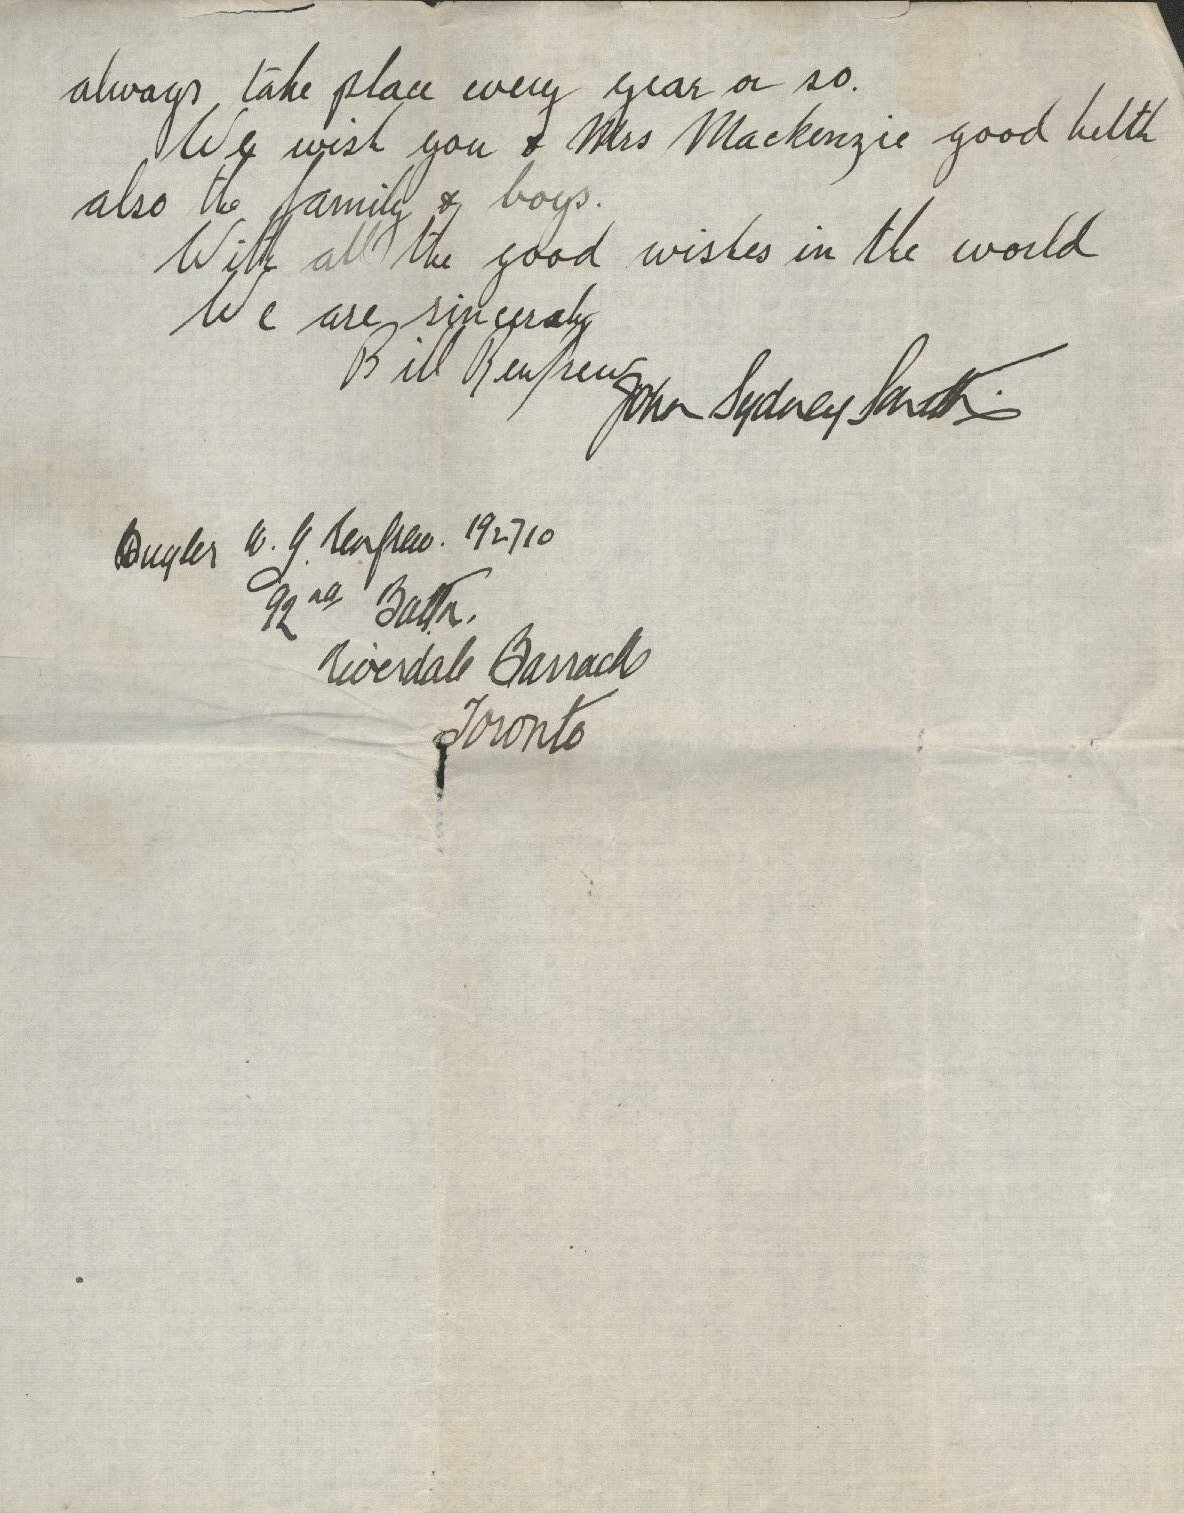 always take place every year or so.
We wish you & Mrs Mackenzie good helth
also the family & boys.
With all the good wishes in the world
We are sincerely
Bill Renfrew
John Sydney
Bugler W. G. Renfrew. 192710
92nd Battn.
Riverdale Barracks
Toronto